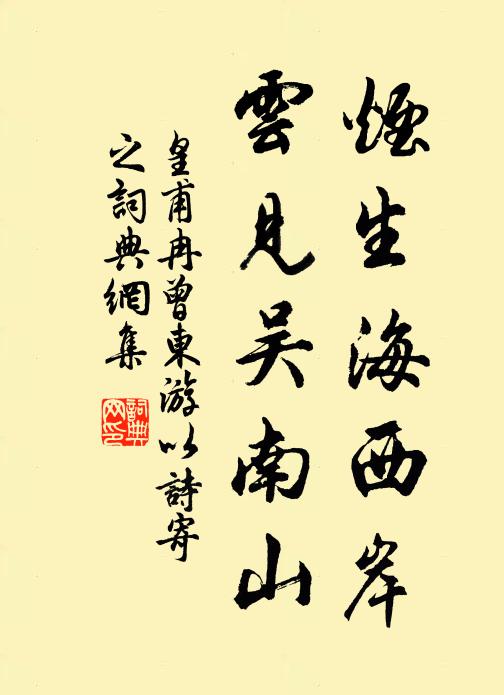 煙生海西岸
雲見吴南山
皇甫冉曾東游以詩寄
之詞典網集
詞典
网印